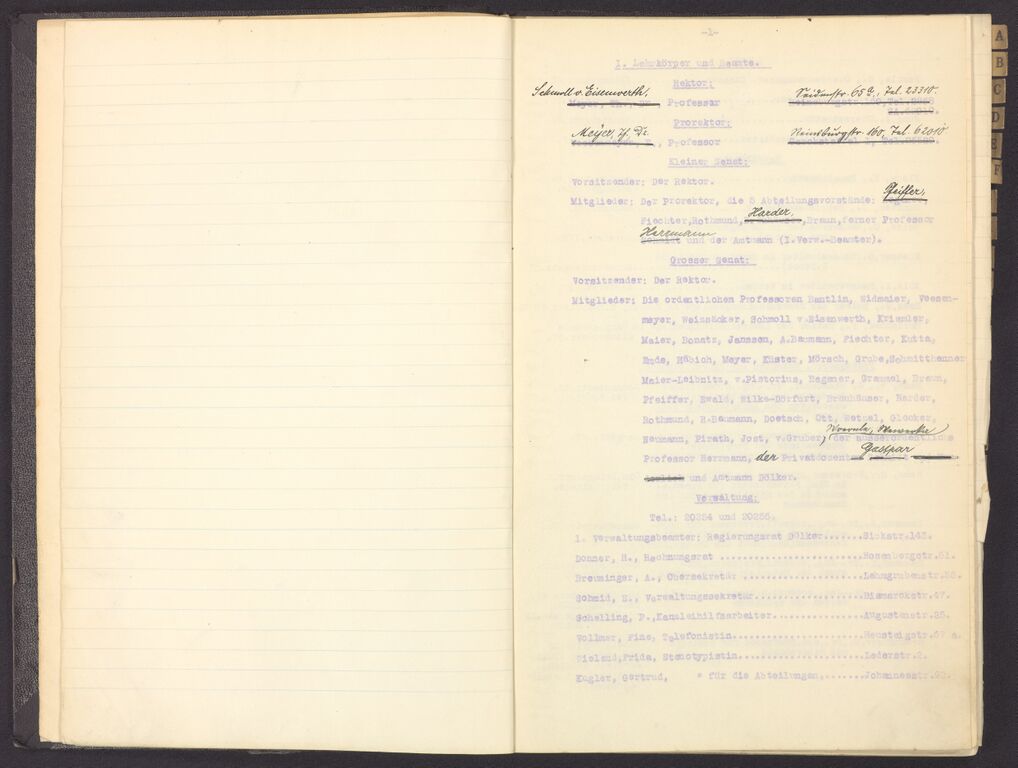 -1-
A
B
C
D
E
F
I. Lehrkörper und Beamte.
Rektor:
Schmoll v. Eisenwerth, Seidenstr. 65 a, Tel. 23310
Meyer, Th., Dr., Professor
Prorektor:
Meyer, Th. Dr. Reinsburgstr. 160, Tel. 62010
Professor
Kleiner Senat:
Vorsitzender: Der Rektor.
Pfeiffer,
Mitglieder: Der Prorektor, die 5 Abteilungsvorstände:
Harder,
Fiechter, Rothmund, Braun, ferner Professor
Herrmann
und der Amtmann (I.Verw.-Beamter).
Grosser Senat:
Vorsitzender: Der Rektor.
Mitglieder: Die ordentlichen Professoren Bantlin, Widmaier, Veesen-
meyer, Weizsäcker, Schmoll v.Eisenwerth, Kriemler,
Maier, Bonatz, Janssen, A.Baumann, Fiechter, Kutta,
Ende, Hübich, Meyer, Küster, Mörsch, Grube, Schmitthenner
Maier-Leibnitz, v.Pistorius, Regener, Grammel, Braun,
Pfeiffer, Ewald, Wilke-Dörfurt, Bräuhäuser, Harder,
Rothmund, R.Baumann, Doetsch, Ott, Wetzel, Glocker,
Neumann, Pirath, Jost, v.Gruber, der ausserordentliche
Gaspar
Professor Herrmann, der Privatdozent
und Amtmann Dölker.
Verwaltung:
Tel.: 20254 und 20255.
1. Verwaltungsbeamter: Regierungsrat Dölker......Sickstr.143.
Donner, R., Rechnungsrat ......................Rosenbergstr.51.
Breuninger, A., Obersekretär ..................Lehmgrubenstr.35.
Schmid, E., Verwaltungssekretär................Bismarckstr.47.
Schelling, P., Kanzleihilfsarbeiter..............Augustenstr.25.
Vollmer, Fine, Telefonistin....................Heusteigstr.67 a.
Wieland, Frida, Stenotypistin...................Lederstr.2.
Kugler, Gertrud, " für die Abteilungen,.......Johannesstr.